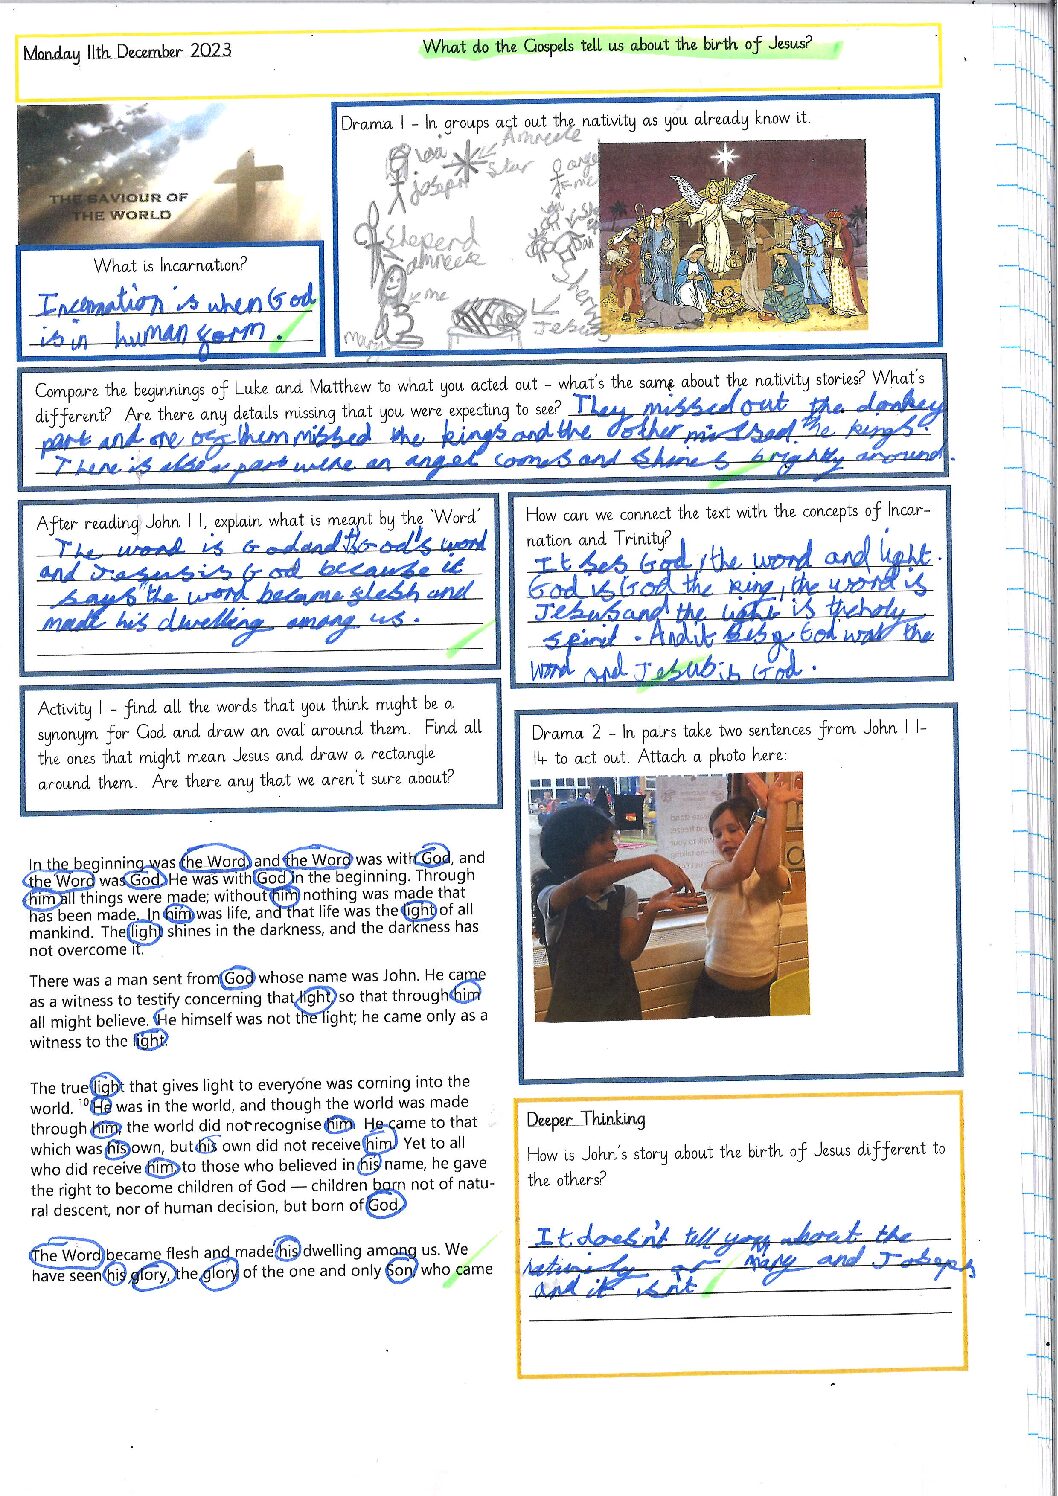 Monday 11th December 2023
What do the Gospels tell us about the birth of Jesus?
THE SAVIOUR OF
THE WORLD
Drama 1 - In groups act out the nativity as you already know it.
Amneete
Star
joseph
Sheperd
amneete
me
Jesus
What is Incarnation?
Incarnation is when God
is in human form.
Compare the beginnings of Luke and Matthew to what you acted out - what's the same about the nativity stories? What's
different? Are there any details missing that you were expecting to see? They missed out the donkey
part and one of them missed the kings and the other missed the kings.
There is also a part were an angel comes and shines brightly around.
After reading John 1 1, explain what is meant by the 'Word'
The word is God and God's word
and Jesus is God because it
says "the word became flesh and
made his dwelling among us.
How can we connect the text with the concepts of Incar-
nation and Trinity?
It ses God, the word and light.
God is God the king, the word is
Jesus and the light is the holy
spirit. And it ses God was the
word and Jesus is God.
Activity 1 - find all the words that you think might be a
synonym for God and draw an oval around them. Find all
the ones that might mean Jesus and draw a rectangle
around them. Are there any that we aren't sure about?
Drama 2 - In pairs take two sentences from John 1 1-
14 to act out. Attach a photo here:
In the beginning was the Word, and the Word was with God, and
the Word was God. He was with God in the beginning. Through
him all things were made; without him nothing was made that
has been made. In him was life, and that life was the light of all
mankind. The light shines in the darkness, and the darkness has
not overcome it.
There was a man sent from God whose name was John. He came
as a witness to testify concerning that light, so that through him
all might believe. He himself was not the light; he came only as a
witness to the light.
The true light that gives light to everyone was coming into the
world. 10 He was in the world, and though the world was made
through him, the world did not recognise him. He came to that
which was his own, but his own did not receive him. Yet to all
who did receive him, to those who believed in his name, he gave
the right to become children of God — children born not of natu-
ral descent, nor of human decision, but born of God.
The Word became flesh and made his dwelling among us. We
have seen his glory, the glory of the one and only Son, who came
Deeper Thinking
How is John's story about the birth of Jesus different to
the others?
It doesn't tell you about the
nativity or Mary and Joseph
and it isn't